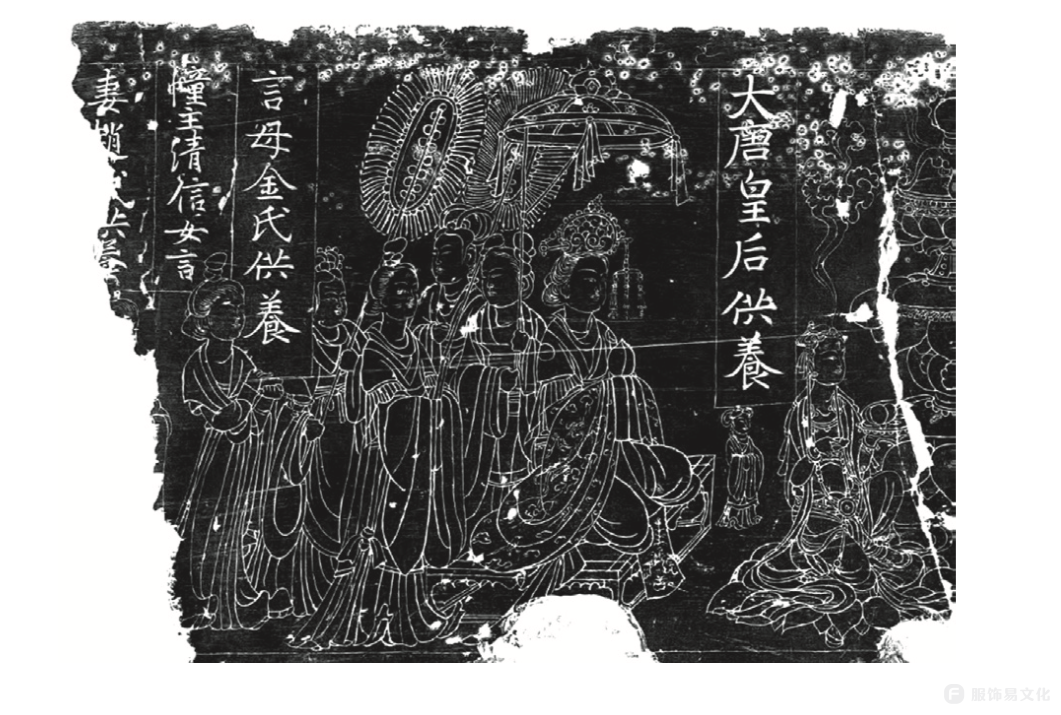 大唐皇后供養
言母金氏供養
幢主清信女言
妻趙氏供養
服饰易文化